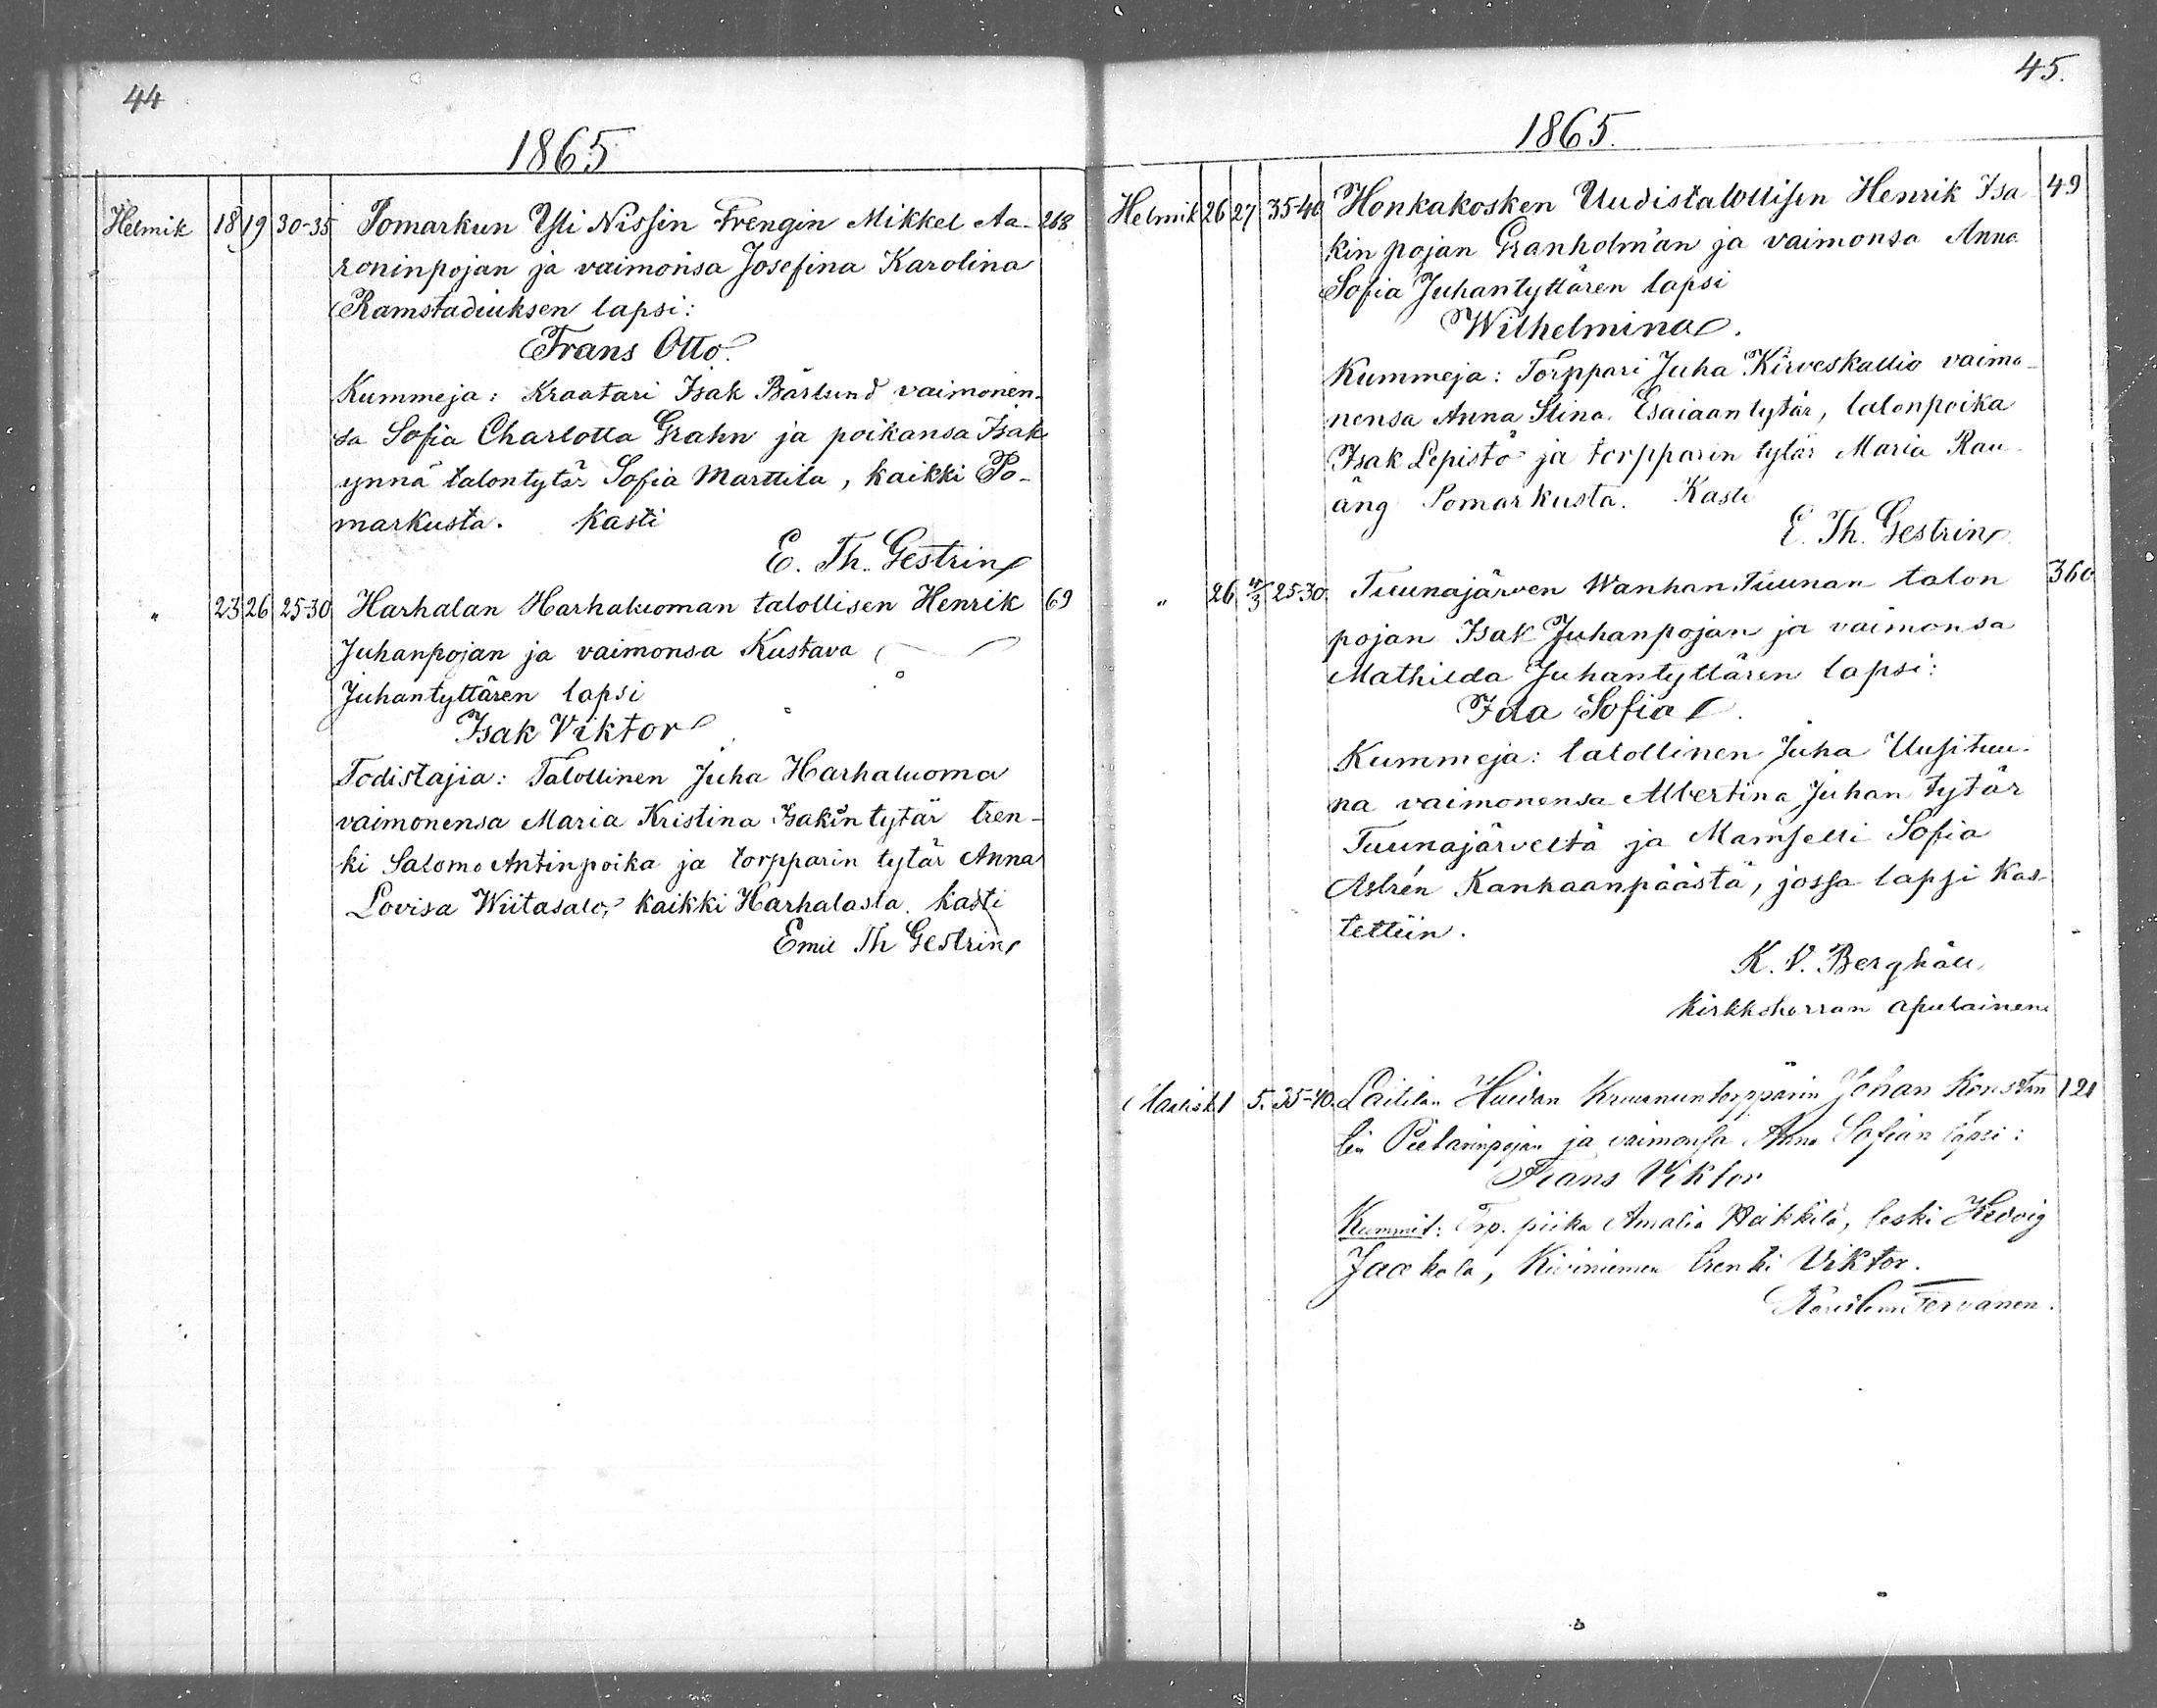 44
1865
Helmik 18 19 30-35 Pomarkun Yli Nissin Frengin Mikkel Aa- 268
roninpojan ja vaimonsa Josefina Karolina
Ramstadiuksen lapsi:
Frans Otto.
Kummeja: Kraatari Isak Bärlund vaimonen-
sa Sofia Charlotta Grahn ja poikansa Isak
ynnä talontytär Sofia Marttila, kaikki Po-
markusta. Kasti
E. Th. Gestrin
" 23 26 25-30 Harhalan Harhaluoman talollisen Henrik 69
Juhanpojan ja vaimonsa Kustava
Juhantyttären lapsi
Isak Viktor
Todistajia: Talollinen Juha Harhaluoma
vaimonensa Maria Kristina Isakin tytär tren-
ki Salomo Antinpoika ja torpparin tytär Anna
Lovisa Wiitasalo, kaikki Harhalasta. kasti
Emil Th Gestrin
45.
1865.
Helmik 26 27 35-40 Honkakosken Uudistalollisen Henrik Isa 49
kin pojan Granholman ja vaimonsa Anna
Sofia Juhantyttären lapsi
Wilhelmina.
Kummeja: Torppari Juha Kirveskallio vaimo-
nensa Anna Stina Esaiaan tytär, talonpoika
Isak Lepistö ja torpparin tytär Maria Rau-
äng Pomarkusta. Kasti
E. Th. Gestrin
" 26 4/3 25-30. Tuunajärven Wanhan Tuunan talon 360
pojan Isak Juhanpojan ja vaimonsa
Mathilda Juhantyttären lapsi:
Ida Sofia.
Kummeja: talollinen Juha Uusituu-
na vaimonensa Albertina Juhan tytär
Tuunajärveltä ja Mamselli Sofia
Astrén Kankaanpäästä, jossa lapsi kas-
tettiin.
K. V. Berghäll
kirkkoherran apulainen
Maalisk. 1 5. 35-40. Laitilan Huidan Kruununtorpparin Johan Konstan 121
tin Peetarinpojan ja vaimonsa Anna Sofian lapsi:
Frans Viktor
Kummit: Trp. piika Amalia Heikkilä, leski Hedvig
Jaakola, Kiviniemen trenki Viktor.
Tervanen.